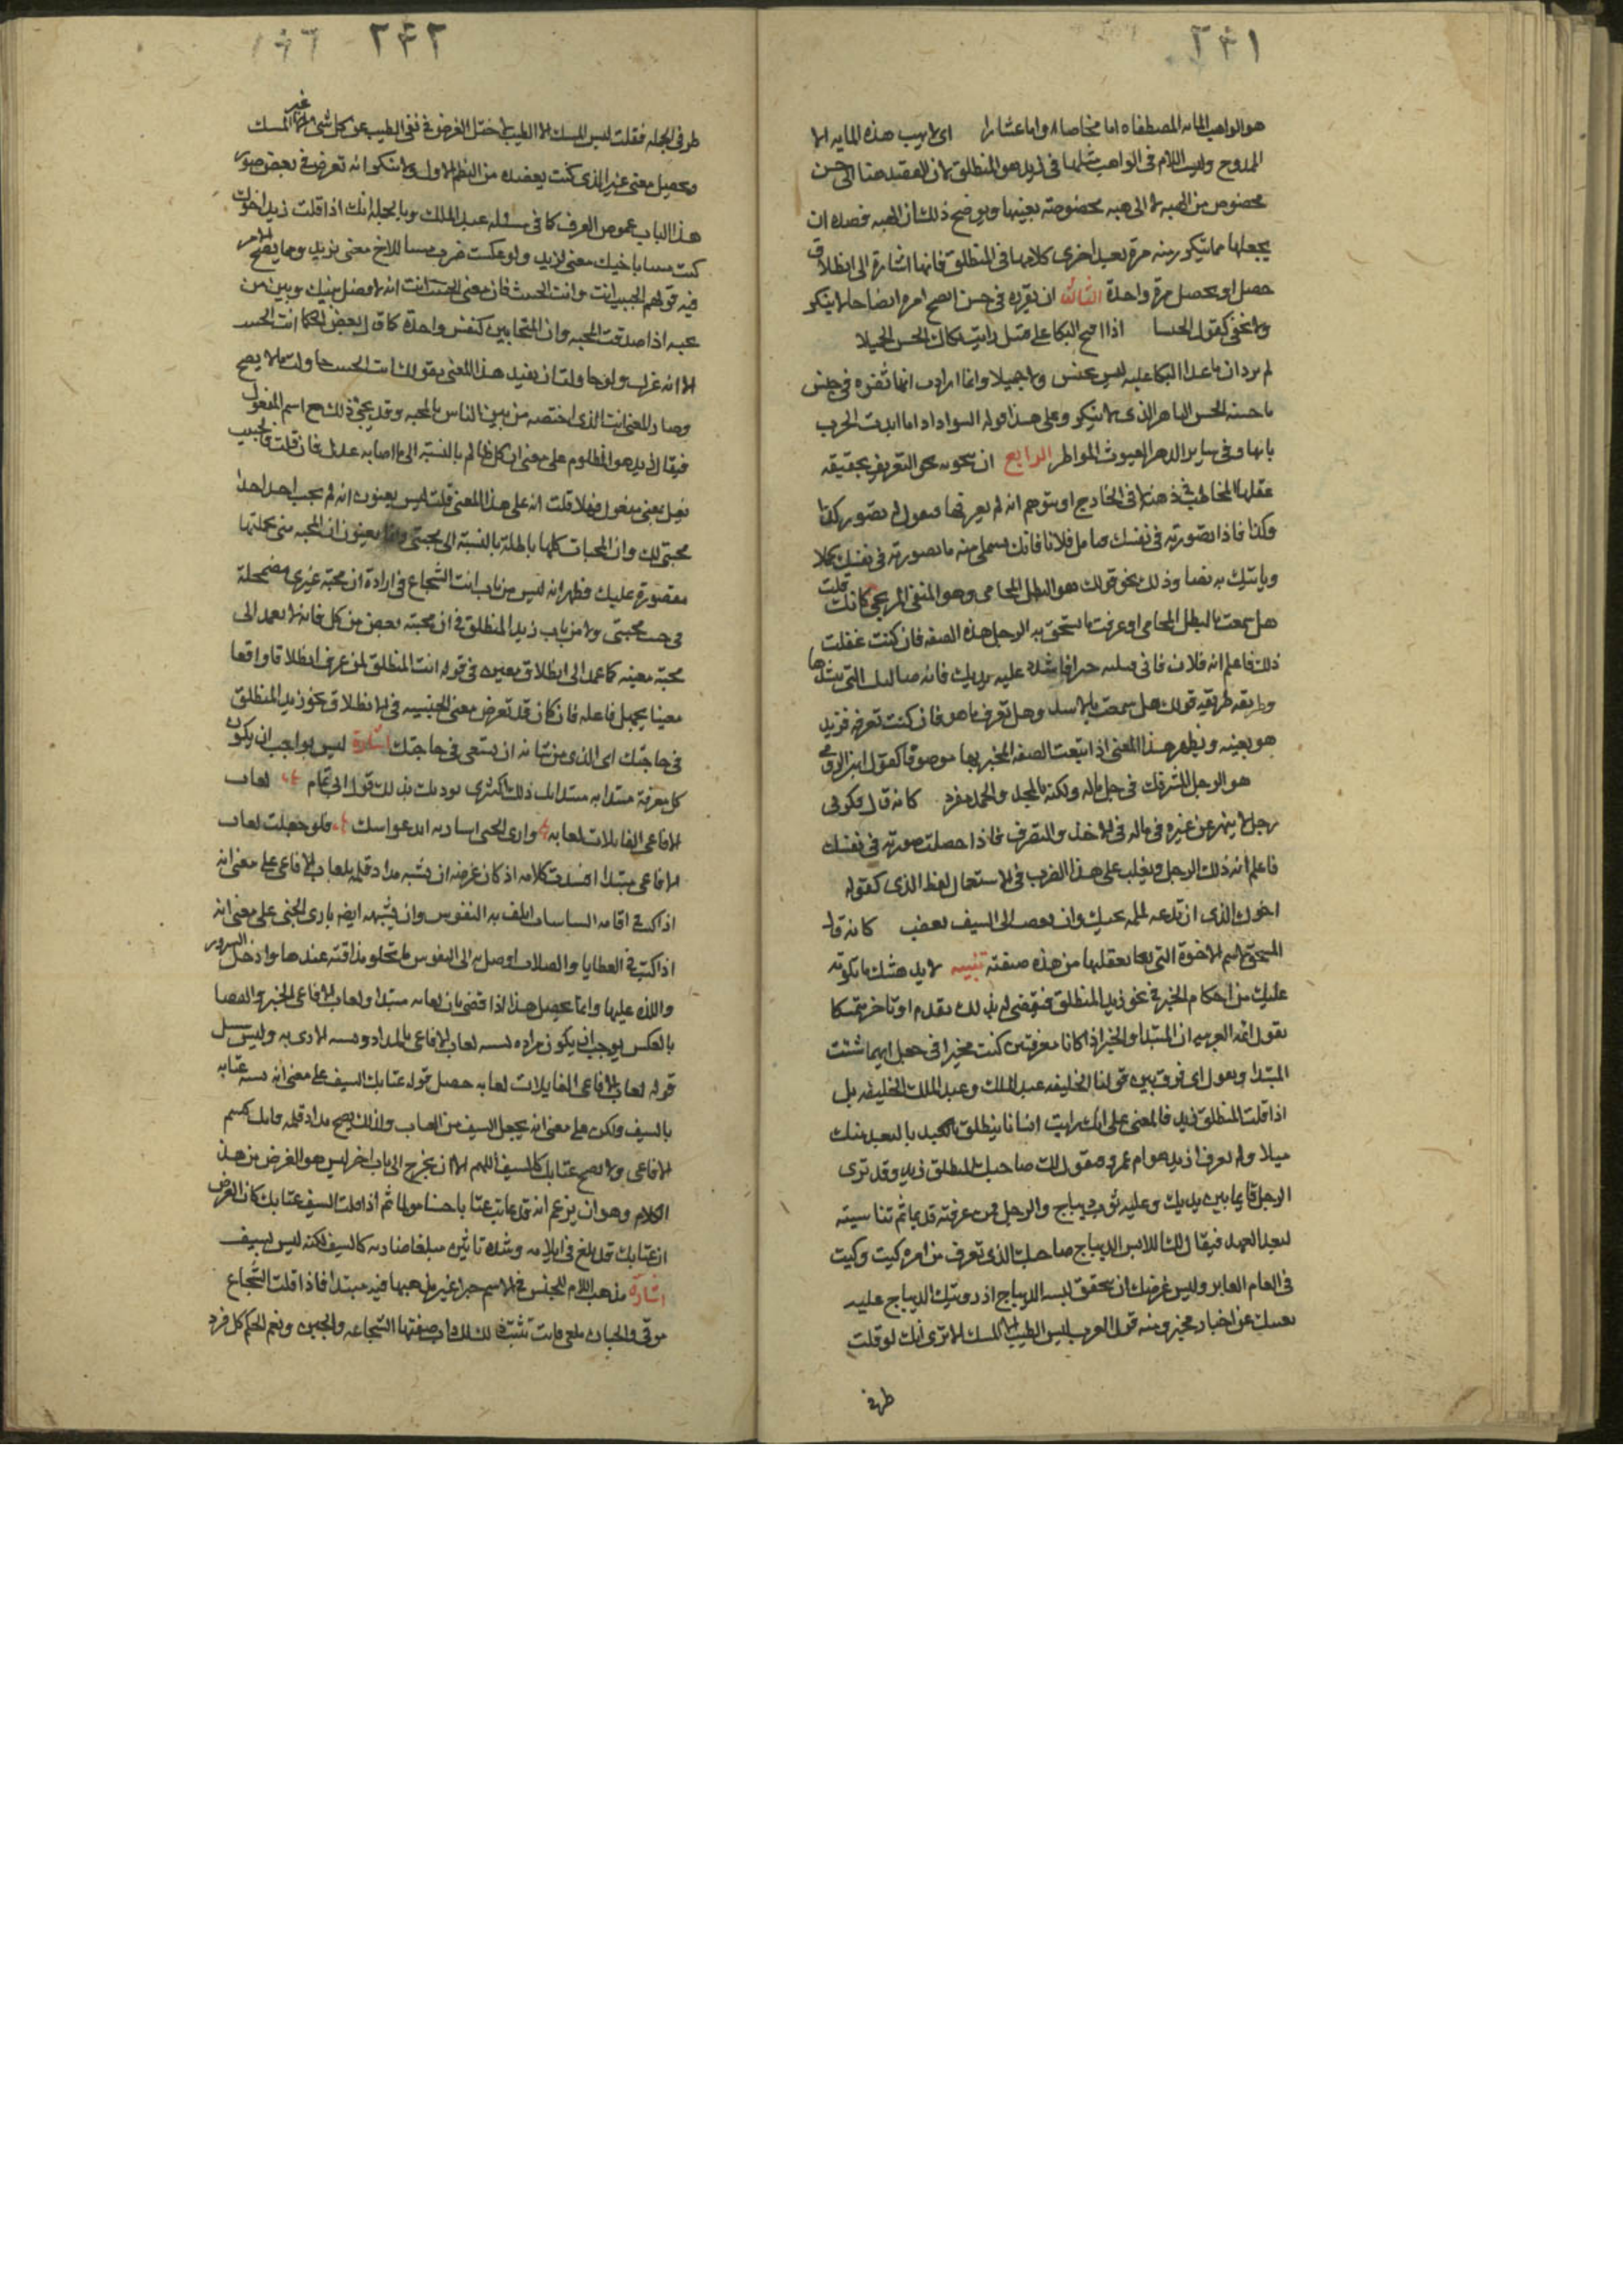 ٢٤١
هو الواهب المائه المصطفاه اما مخاضا واما عشارا اى لا يهب هذه المايه الا
الممدوح وليس اللام فى الواهب مثلها فى زيد هو المنطلق لان القصد هنا الى جنس
مخصوص من الهبه لا الى هبه مخصوصة بعينها ويوضح ذلك ان الهبه قصده ان
يجعلها مما يتكرر منه مرة بعد اخرى كلامها فى المنطلق فانها اشارة الى انطلاق
حصل او يحصل مرة واحدة الثالث ان يقرره فى جنس امره حالا ينكر
ولا يخفى كقول الخنسا اذا قبح البكا على قتيل رايت بكاك الحسن الجميلا
لم يرد ان ما عدا البكا عليه ليس بحسن ولا جميل وانما ارادت انها تقره فى جنس
ما حسنه الحسن الباهر الذى لا ينكر وعلى هذا قوله
الرابع ان ينحو به نحو التعريف بحقيقة
عقلها المخاطب فى ذهنه لا فى الخارج او يتوهم انه لم يعرفها فيقول له تصور كذا
وكذا فاذا تصورته فى نفسك فتامل فلانا فانك منه ما تصورته فى نفسك كملا
وياتيك به نصا وذلك نحو قولك هو البطل المحامى وهو المتقى المرتجى كانك قلت
هل سمعت بالبطل المحامى او عرفت ما يستحق به الرجل هذه الصفه فان كنت عقلت
ذلك فاعلم انه فلان عليه يديك فانه ضالتك التى تنشدها
وطريقه طريقة قولك هل سمعت بالاسد وهل تعرف ما هو فان كنت تعرفه فزيد
هو بعينه ويظهر هذا المعنى اذا اتبعت الصفه المخبر بها موصوفا كقول ابن الرومى
هو الرجل المشروك فى جل ماله ولكنه بالمجد والحمد مفرد كانه قال فكر فى
رجل لا يتميز عن غيره فى ماله فى الاخذ والتصرف فاذا حصلت صورته فى نفسك
فاعلم انه ذلك الرجل ويغلب على هذا الضرب فى الاستعمال لفظ الذى كقوله
اخوك الذى ان تدعه لملمه يجبك وان تغضب الى السيف يغضب كانه قال
المستحق لاسم الاخوة التى من هذه صفته تنبيه لا يدهشنك ما تكرر
عليك من احكام الخبر فى نحو زيد المنطلق فتقضى له بذلك تقدم او تاخر متمسكا
بقول ائمة العربيه ان المبتدا والخبر اذا كانا معرفتين كنت مخيرا فى جعل ايهما شئت
المبتدا وتقول اى فرق بين قولنا الخليفه عبد الملك وعبد الملك الخليفه بل
اذا قلت المنطلق زيد فالمعنى على انك رايت انسانا ينطلق بالبعد منك
ميلا ولم تعرف ازيد هو ام عمرو فيقول لك صاحبك المنطلق زيد وقد ترى
الرجل قائما بين يديك وعليه ثوب ديباج والرجل ممن عرفته قديما ثم تناسيته
لبعد العهد فيقال لك اللابس الديباج صاحبك الذى تعرف من امره كيت وكيت
فى العام الغابر وليس غرضك ان يتحقق لبسه الديباج اذ رويتك الديباج عليه
تغنيك عن اخبار مخبر ومنه قول العرب ليس الطيب الا المسك الا ترى انك لو قلت
طرفى
٢٤٢
طرفى الجمله فقلت ليس المسك الا الطيب لاختل الغرض فى نفى الطيب عن كل شى غير المسك
وتحصيل معنى غير الذى كنت بصدده من النظم الاول ولا شك انه تعرض فى بعض صور
هذا الباب غموض الفرق كما فى مسئله عبد الملك وبالجمله انك اذا قلت زيد اخوك
كنت مثبتا باخيك معنى لزيد ولو عكست صرت مثبتا للاخ معنى بزيد ومما يتضح الامر
فيه قولهم الحبيب انت وانت الحبيب فان معنى الحبيب انت انه لا فصل بينك وبين من
تحبه اذا صدقت المحبه وان المتحابين كنفس واحدة كما قال بعض الحكما انت الحبيب
الا انه غيرك ولو حاولت ان تفيد هذا المعنى بقولك انت الحبيب حاولت ما لا يصح
وصار المعنى انت الذى اختصه من بين الناس بالمحبه وقد يجى ذلك مع اسم المفعول
فيقال زيد هو المظلوم على معنى ان كل ظلم بالنسبة الى ما اصابه عدل فان قلت فالحبيب
فعيل بمعنى مفعول فهلا قلت انه على هذا المعنى قلت ليس يعنون انه لم يحب احد احدا
محبتى لك وان المحبات كلها باطلة بالنسبة الى محبتى وانما يعنون ان المحبه منى بجملتها
مقصورة عليك فظهر انه ليس من باب انت الشجاع فى ارادة ان محبة غيرى مضمحلة
فى جنب محبتى ولا من باب زيد المنطلق فى ان محبته بعض من كل فانه لا يعمد الى
محبة معينه كما عمد الى انطلاق بعينه فى قوله انت المنطلق لمن عرف انطلاقا واقعا
معينا يجهل فاعله فان كان قد تعرض معنى الجنسيه فى الانطلاق نحو زيد المنطلق
فى حاجتك اى الذى من شانه ان يسعى فى حاجتك اشارة ليس بواجب ان يكون
كل معرفة مبتدا به مبتدا بل ذلك اكثرى بذلك قول ابى تمام لعاب
الافاعى القاتلات لعابه وارى الجنى اشتارته ايد عواسل فلو جعلت لعاب
الافاعى مبتدا افسدت كلامه اذ كان غرضه ان يشبه مداد قلمه بلعاب الافاعى على معنى انه
اذا كتب فى اقامه السياسات اتلف به النفوس وان يشبهه ايضا بارى الجنى على معنى انه
اذا كتب فى العطايا والصلات اوصل به الى النفوس ما تحلو مذاقته عندها وادخل السرور
واللذه عليها وانما يحصل هذا اذا قضى بان لعابه مبتدا ولعاب الافاعى الخبر والقضا
بالعكس يوجب ان يكون مراده تشبيه لعاب الافاعى بالمداد وتشبيه الارى به وليس سبيل
قوله لعاب الافاعى القاتلات لعابه سبيل قوله عتابك السيف على معنى انه تشبيه عتابه
بالسيف ولكن على معنى انه يجعل السيف من العتاب ولذلك يصح مداد قلمه قاتل كسم
الافاعى ولا يصح عتابك كالسيف اللهم الا ان يخرج الى باب اخر ليس هو الغرض من هذا
الكلام وهو ان يزعم انه قد عاتب عتابا خشنا مولما ثم اذا قلت السيف عتابك كان الغرض
ان عتابك قد بلغ فى ايلامه وشدة تاثيره مبلغا صار به كالسيف لكنه ليس بسيف
اشارة مذهب اللام للجنس فى الاسم خبرا غير مذهبها فيه مبتدا فاذا قلت الشجاع
موقى والجبان ملقى فانت تثبت ذلك لذات صفتها الشجاعه والجبن ويعم الحكم كل فرد